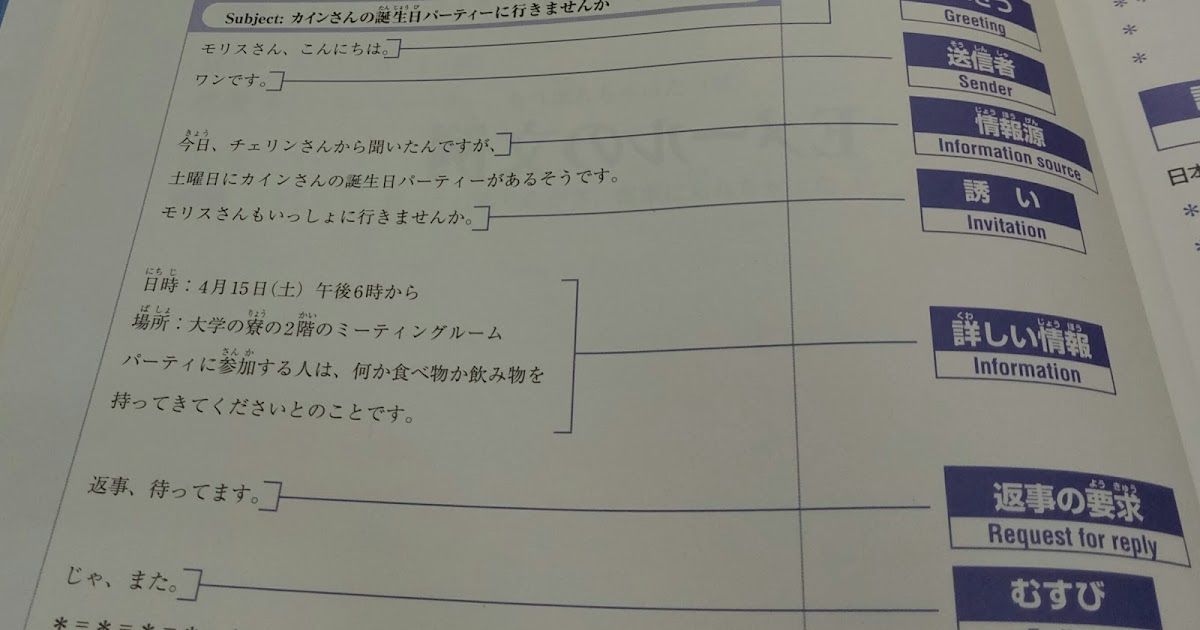 Subject: カインさんの誕生日パーティーに行きませんか
モリスさん、こんにちは。
Greeting
ワンです。
送信者
Sender
今日、チェリンさんから聞いたんですが、
情報源
Information source
土曜日にカインさんの誕生日パーティーがあるそうです。
モリスさんもいっしょに行きませんか。
誘い
Invitation
日時：4月15日(土) 午後6時から
場所：大学の寮の2階のミーティングルーム
パーティに参加する人は、何か食べ物か飲み物を
持ってきてくださいとのことです。
詳しい情報
Information
返事、待ってます。
返事の要求
Request for reply
じゃ、また。
むすび
＊=＊=＊=＊
日本